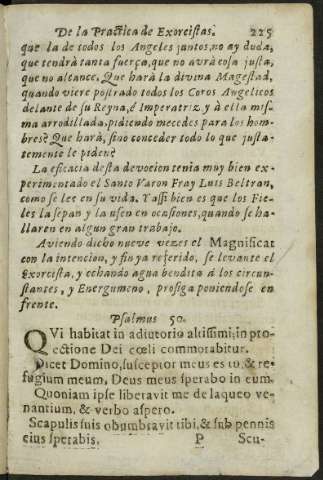 De la Practica de Exorcistas. 225
que la de todos los Angeles juntos, no ay duda,
que tendrà tanta fuerça, que no avrà cosa justa,
que no alcance. Que harà la divina Magestad,
quando viere postrado todos los Coros Angelicos
delante de su Reyna, è Imperatriz, y à ella mis-
ma arrodillada, pidiendo mecedes para los hom-
bres? Que harà, sino conceder todo lo que justa-
temente le piden?
La eficacia desta devocion tenia muy bien ex-
perimentado el Santo Varon Fray Luis Beltran,
como se lee en su vida. Y assi bien es que los Fie-
les la sepan, y la usen en ocasiones, quando se ha-
llaren en algun gran trabajo.
Aviendo dicho nueve vezes el Magnificat
con la intencion, y fin ya referido, se levante el
Exorcista, y echando agua bendita à los circun-
stantes, y Energumeno, prosiga poniendose en
frente.
Psalmus 50.
QVi habitat in adiutorio altissimi: in pro-
tectione Dei cœli commorabitur.
Dicet Domino, susceptor meus es tu, & re-
fugium meum, Deus meus sperabo in eum.
Quoniam ipse liberavit me de laqueo ve-
nantium, & verbo aspero.
Scapulis suis obumbravit tibi, & sub pennis
eius sperabis. P Scu-